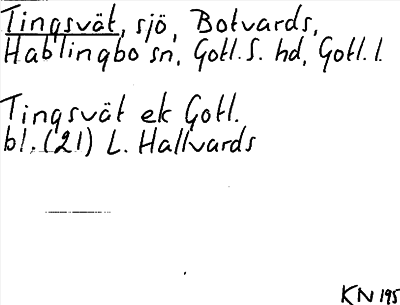 Tingsvät, sjö, Botvards,
Hablingbo sn, Gotl. S. hd, Gotl. l.
Tingsvät ek Gotl.
bl. (21) L. Hallvards
KN 195